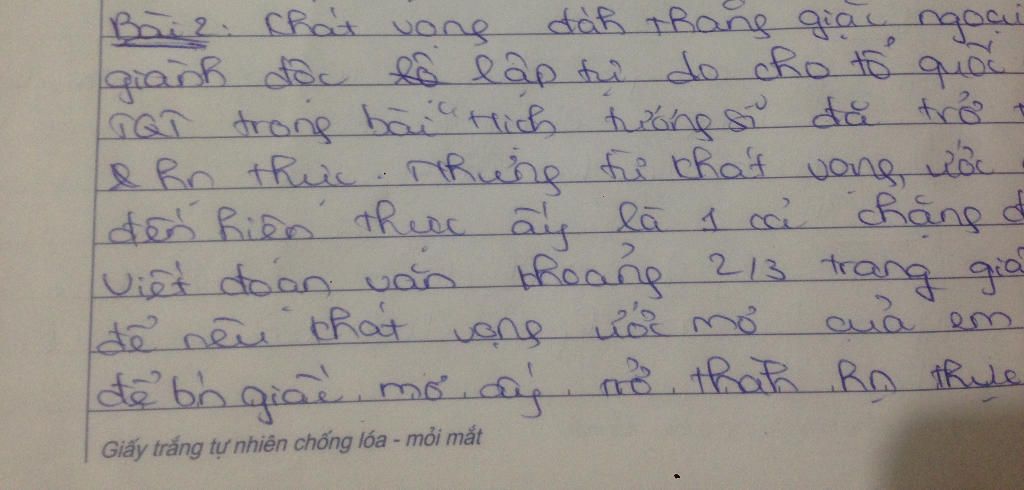 Bài 2: Khát vọng đánh thắng giặc ngoại
giành độc lập tự do cho tổ quốc
TQT trong bài "Hịch tướng sĩ đã trở
là hn thực. Nhưng từ khát vọng, ước
đến hiện thực ấy là 1 cả chặng
Viết đoạn văn khoảng 2/3 trang giấ
để nêu khát vọng ước mơ của em
để bn giấc mơ ấy trở thành hn thực
Giấy trắng tự nhiên chống lóa - mỏi mắt